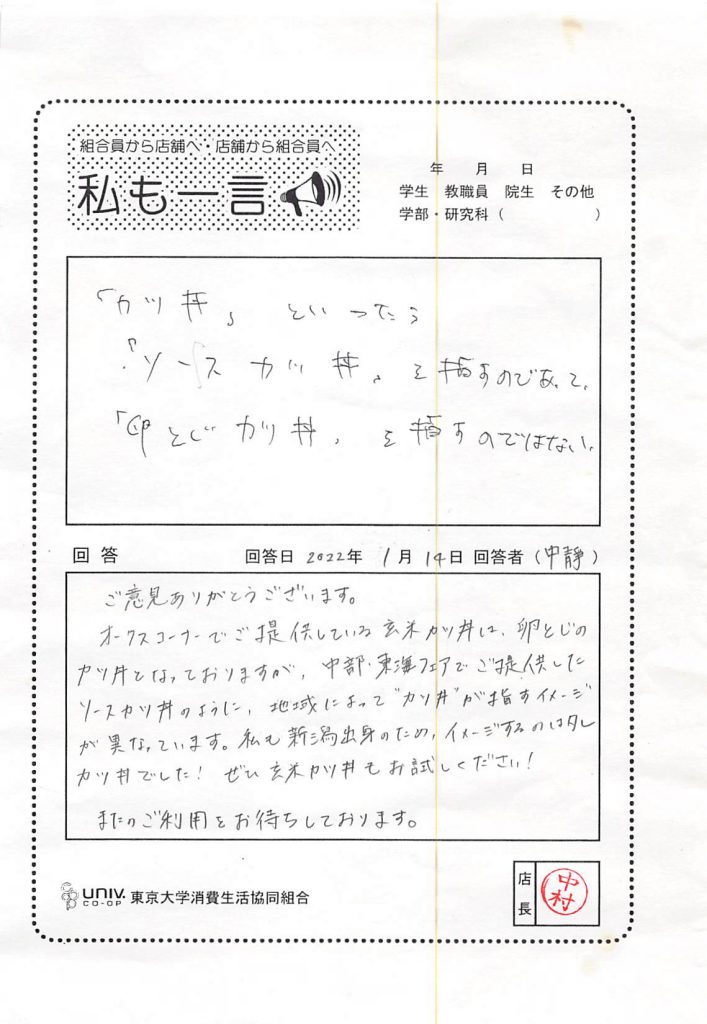 組合員から店舗へ・店舗から組合員へ
私も一言
年 月 日
学生 教職員 院生 その他
学部・研究科( )
「カツ丼」 といったら
「ソースカツ丼」を指すのであって、
「卵とじカツ丼」を指すのではない。
回答 回答日 2022年 1月 14日 回答者(中靜)
ご意見ありがとうございます。
オークスコーナーでご提供している玄米カツ丼は、卵とじの
カツ丼となっておりますが、中部・東海フェアでご提供した
ソースカツ丼のように、地域によって"カツ丼"が指すイメージ
が異なっています。私も新潟出身のため、イメージするのはタレ
カツ丼でした! ぜひ玄米カツ丼もお試しください!
またのご利用をお待ちしております。
UNIV. CO-OP 東京大学消費生活協同組合
店長 中村